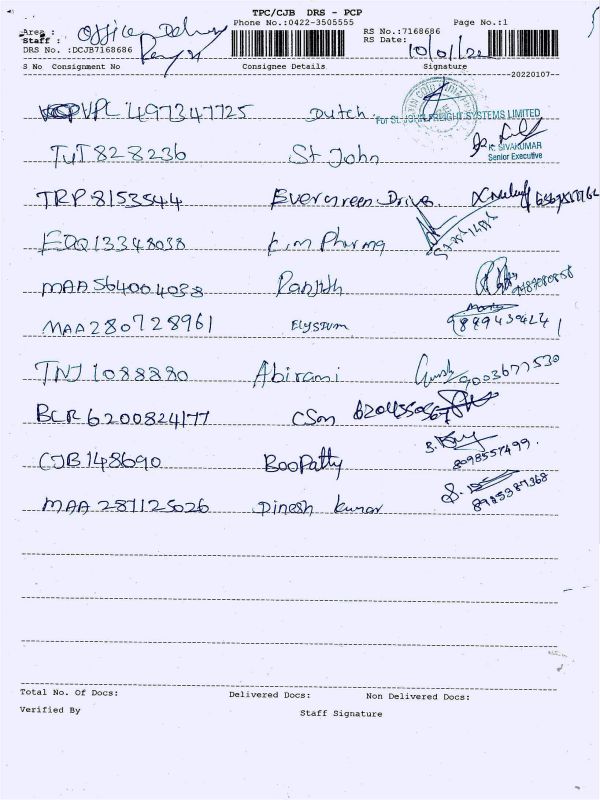 TPC/CJB DRS - PCP
Area : Office Delivery Phone No.:0422-3505555 RS No.:7168686 Page No.:1
Staff : RS Date: 10/01/22
DRS No. :DCJB7168686
S No Consignment No Consignee Details Signature
20220107
VPL 497347725 Dutch
For ST. JOHN FREIGHT SYSTEMS LIMITED
TUT 828236 St John
K. SIVAKUMAR
Senior Executive
TRP 8153544 Evergreen Drive
EDQ 13348038 Kim Pharma
MAA 564004038 Ranjith
MAA 280728961 ELYSIUM
TNJ 1088880 Abirami 9003677530
BCR 6200824177 CSM
CJB 148690 Boopathy 8098557499.
MAA 287125026 Dinesh kumar 8925387368
Total No. Of Docs: Delivered Docs: Non Delivered Docs:
Verified By Staff Signature